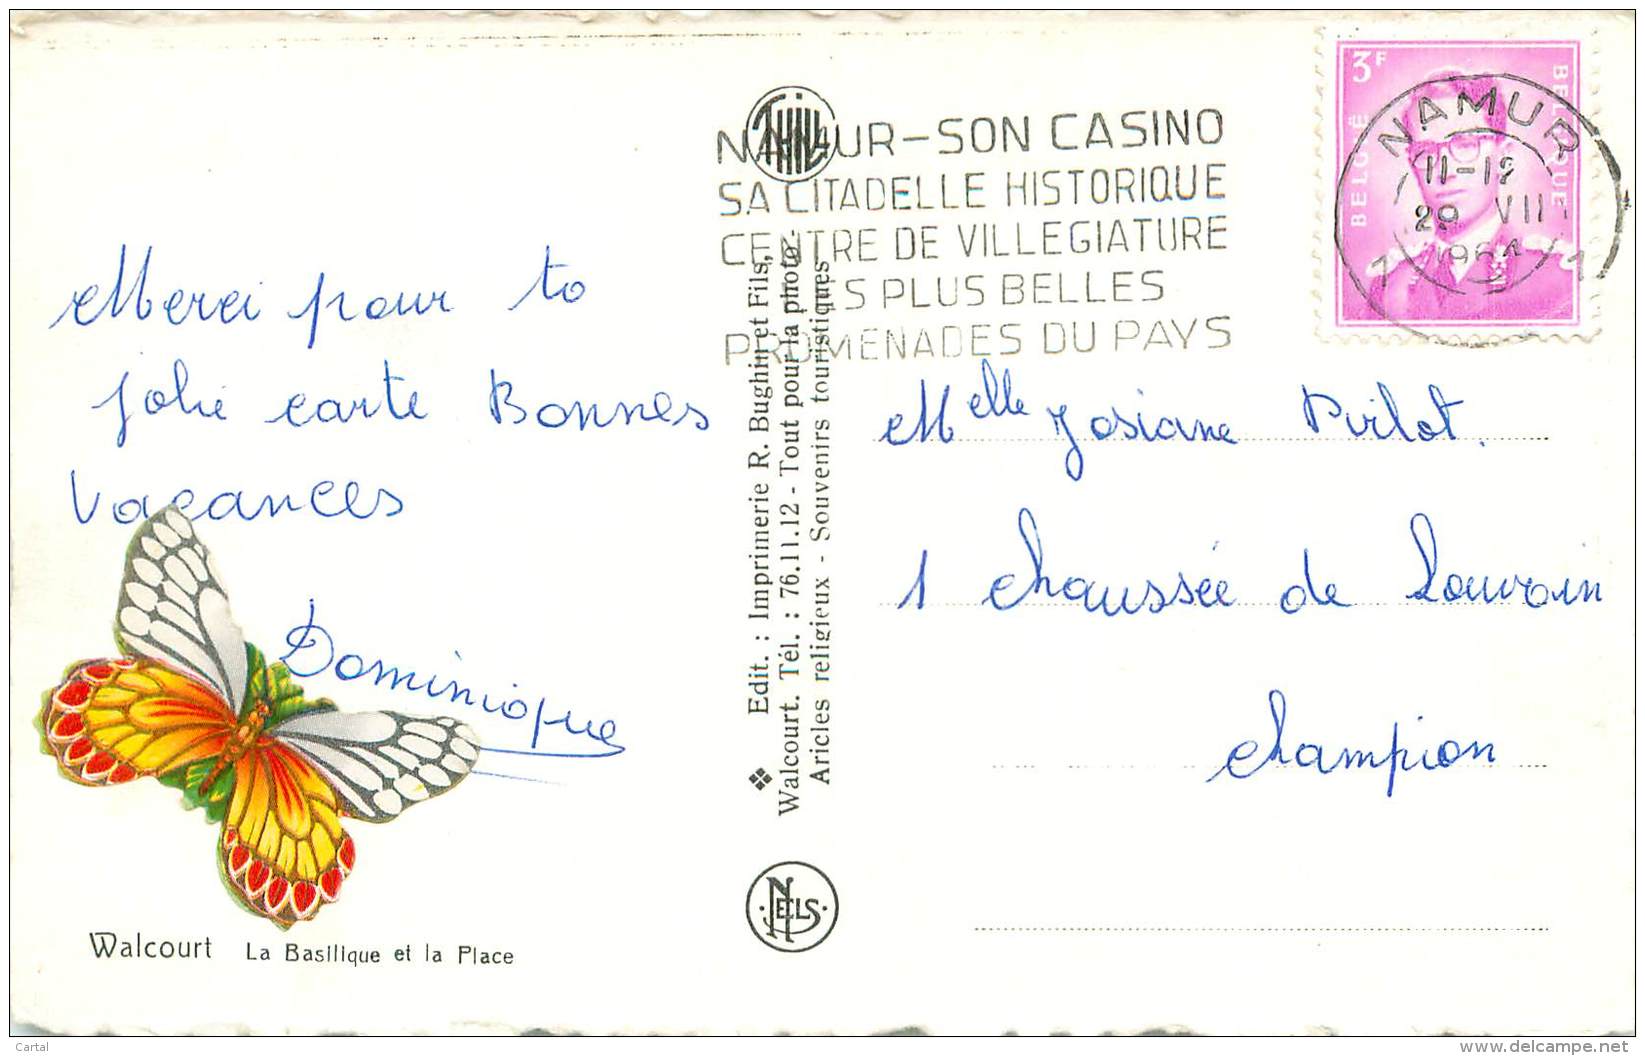 NAMUR-SON CASINO
SA CITADELLE HISTORIQUE
CENTRE DE VILLEGIATURE
PLUS BELLES
PROMENADES DU PAYS
3F
BELGIQUE
BELGIË
NAMUR
11-12
29 VII
1964
1 1
Merci pour ta
jolie carte Bonnes
Vacances
Dominique
Melle Josiane Pirlot.
1 chaussée de Louvain
Champion
❖ Edit. : Imprimerie R. Bughin et Fils,
Walcourt. Tél. : 76.11.12 - Tout pour la photo.
Aricles religieux - Souvenirs touristiques
NELS
Walcourt La Basilique et la Place
Cartal
www.delcampe.net